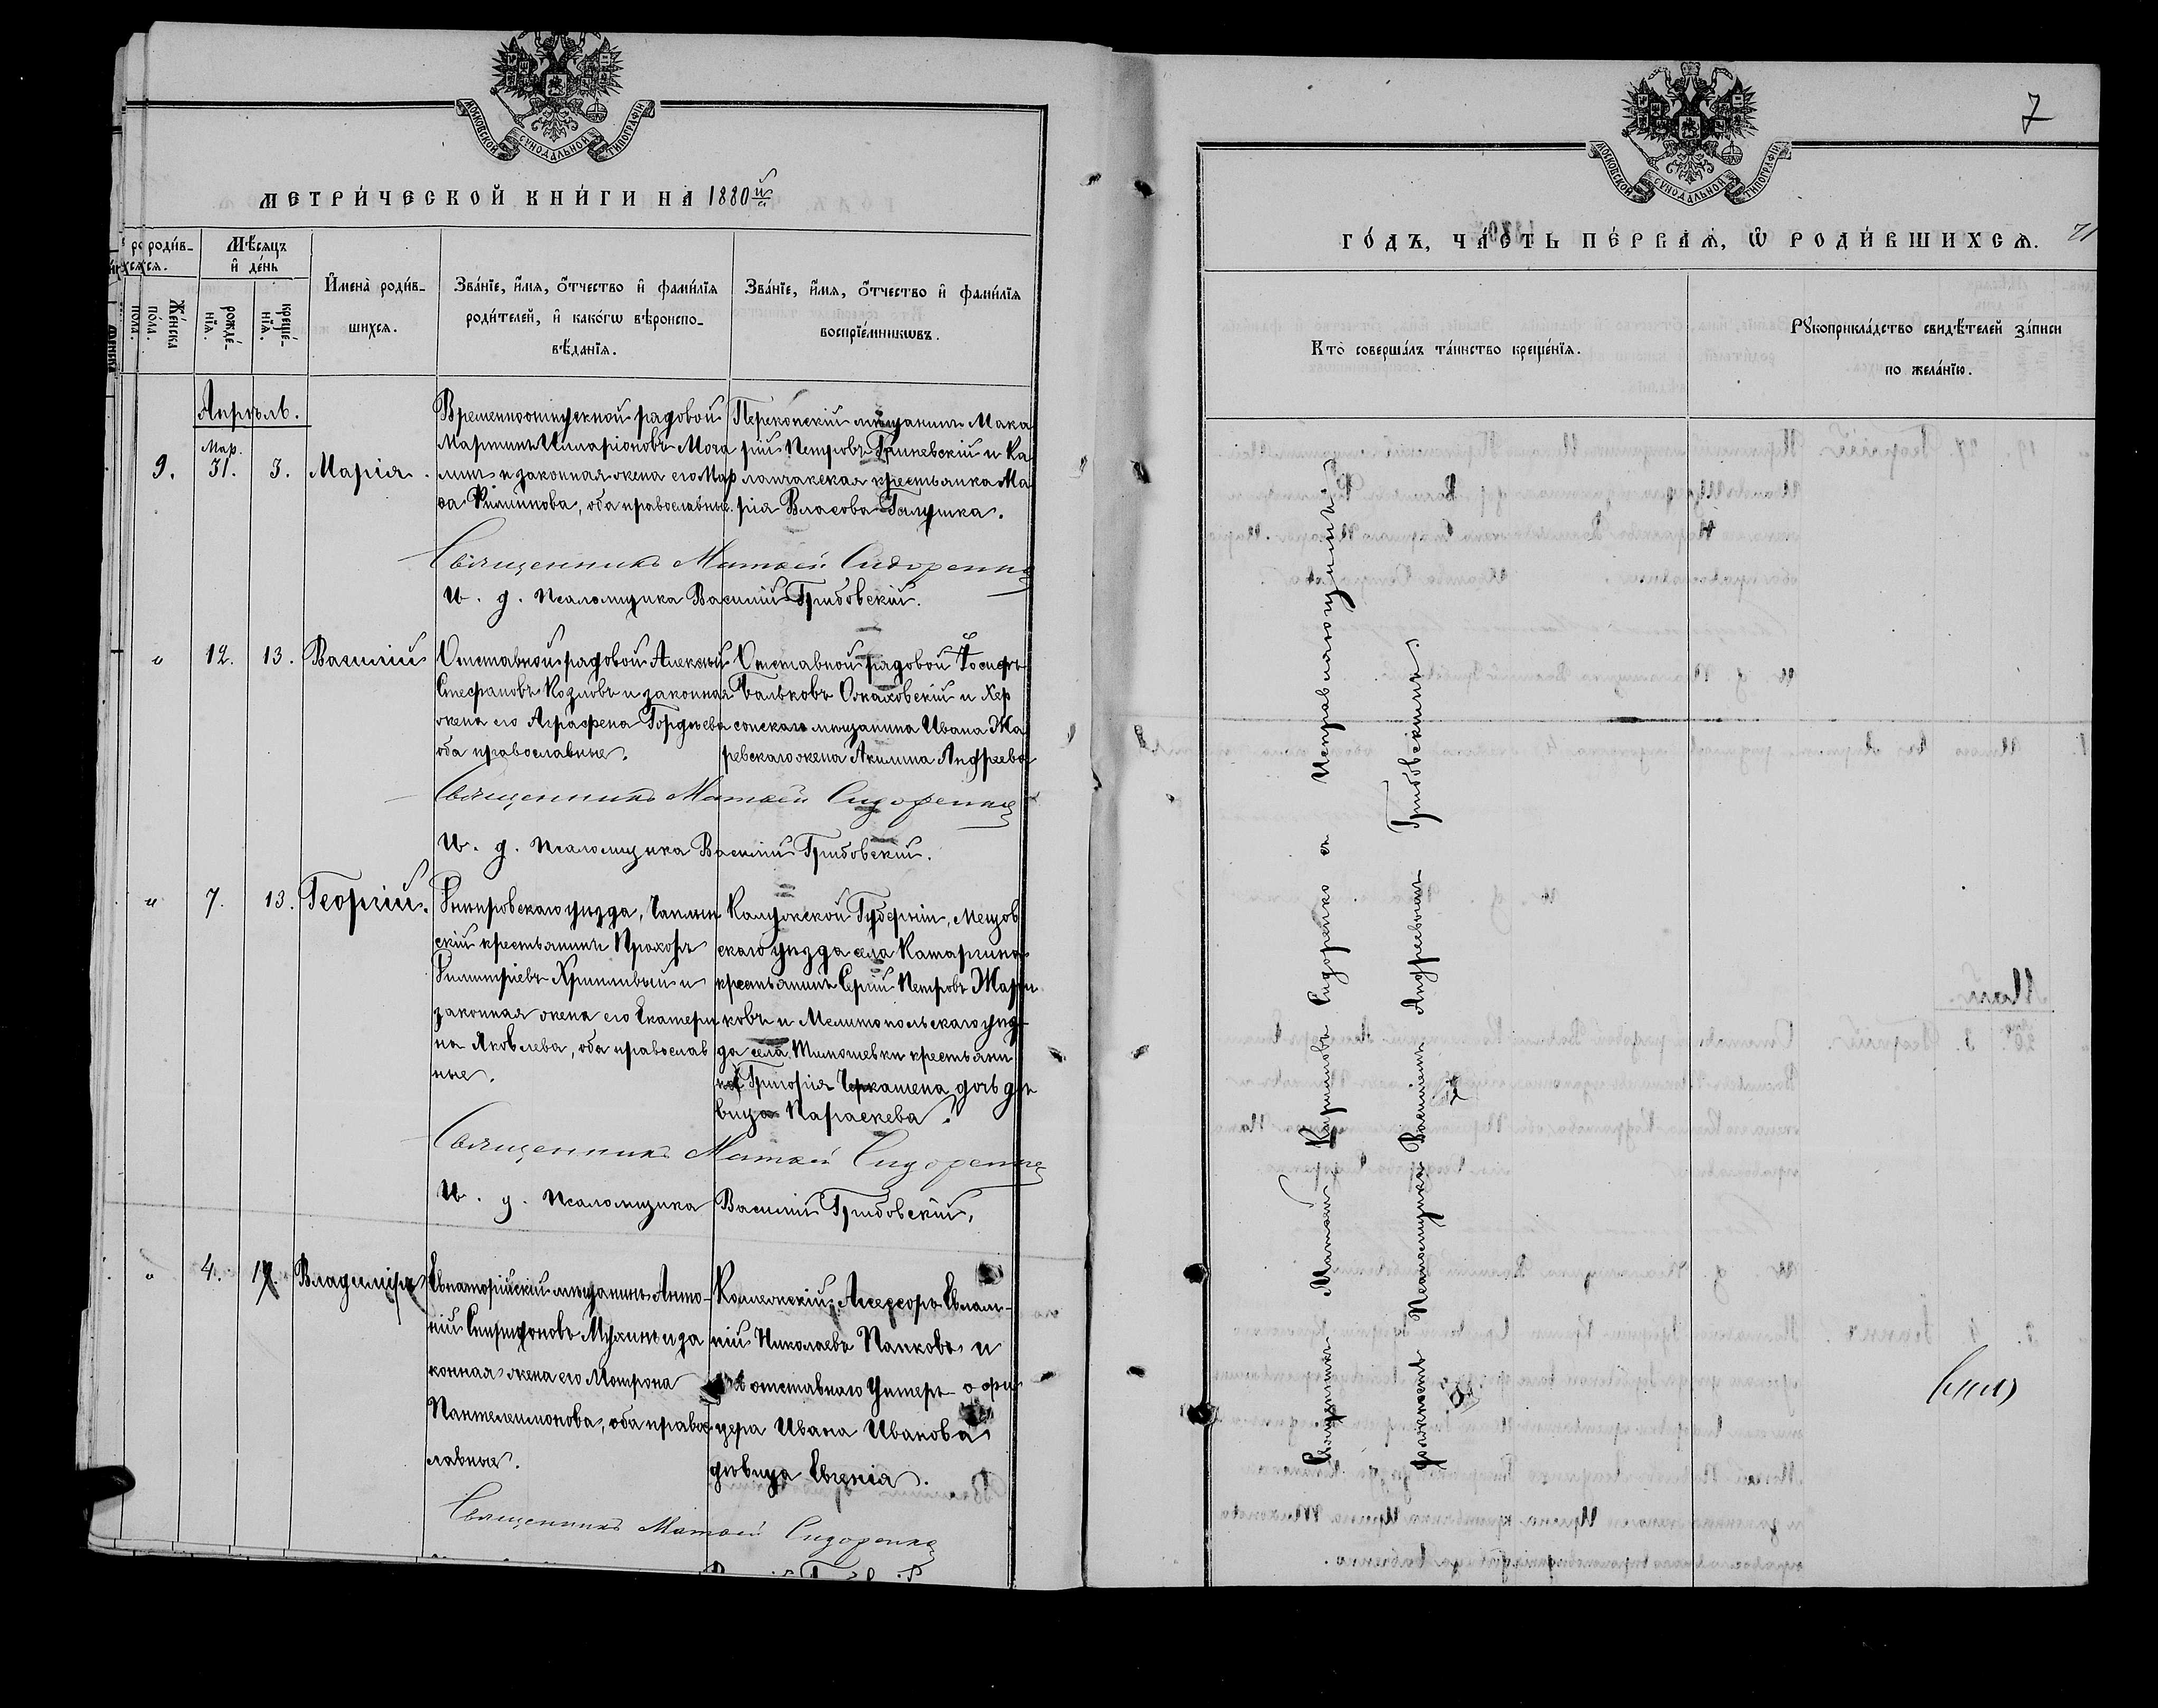 МОСКОВСКОЙ СѴНОДАЛЬНОЙ ТИПОГРАФІИ
МЕТРИ́ЧЕСКОЙ КНИ́ГИ НА 1880й
роди́в-
хся.
Мѣ́сяцъ
и҆ де́нь
Же́нска по́ла.
рожде́-нїѧ.
креще́-нїѧ.
И҆мена̀ роди́в-
шихся.
Зва́нїе, и҆́мѧ, ѻ҆́тчество и҆ фами́лїѧ
роди́телей, и҆ како́гѡ вѣроиспо-
вѣ́данїѧ.
Зва́нїе, и҆́мѧ, ѻ҆́тчество и҆ фами́лїѧ
воспрїе́мникѡвъ.
Апрѣль.
9.
Мар.
31.
3.
Марія.
Временноотпускной рядовой
Мартинъ Илларіоновъ Моча
линъ и законная жена его Мар
ѳа Филипова, оба православные.
Перекопскій мѣщанинъ Мака
рій Петровъ Гриневскій и Ка
ланчакская крестьянка Ма
рія Власова Галушка.
Священникъ Матѳей Сидоренко
И. д. псаломщика Василій Грибовскій.
"
12.
13.
Василій
Отставной рядовой Алексѣй
Стефановъ Козловъ и законная
жена его Аграфена Гордѣева
оба православные.
Отставной рядовой Іосифъ
Бальковъ Ожаховскій и Хер
сонскаго мѣщанина Ивана Жа
ревскаго жена Акилина Андреева
Священникъ Матѳей Сидоренко
И. д. псаломщика Василій Грибовскій.
"
7.
13.
Георгій.
Днѣпровскаго уѣзда, Чаплин
скій крестьянинъ Прохоръ
Димитріевъ Хрипливый и
законная жена его Екатери
на Яковлева, оба православ
ные.
Калужской Губерніи, Мещов
скаго уѣзда села Катаргина
крестьянинъ Сергій Петровъ Жари
ковъ и Мелитопольскаго уѣз-
да села Тимошевки крестьяни
на Григорія Черкашена дочь дѣ
вица Параскева.
Священникъ Матѳей Сидоренко
И. д. псаломщика Василій Грибовскій.
"
4.
Владиміръ
Евпаторійскій мѣщанинъ Анто-
ній Спиридоновъ Мухинъ и за
конная жена его Матрона
Пантелеимонова, оба право
славные.
Коллежскій Ассесоръ Евлам-
пій Николаевъ Папковъ и
отставного Унтеръ-офи
цера Ивана Иванова
дѣвица Евгенія.
Священникъ Матѳей Сидоренко
7
МОСКОВСКОЙ СѴНОДАЛЬНОЙ ТИПОГРАФІИ
ГО́ДЪ, ЧА́СТЬ ПЕ́РВАѦ, Ѡ҆ РОДИ́ВШИХСѦ.
Кто̀ соверша́лъ та́инство креще́нїѧ.
Рꙋкоприкла́дство свидѣ́телей за́писи
по жела́нїю.
Священникъ Матѳей Кириловъ Сидоренко съ Исправляющимъ
должность Псаломщика Василіемъ Андреевымъ Грибовскимъ.